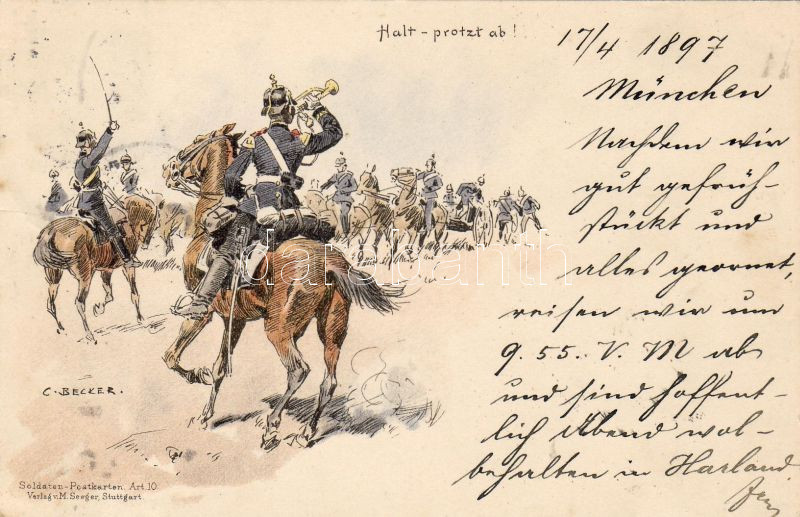 Halt - protzt ab!
17/4 1897
München
Nachdem wir
gut gefrüh-
stückt und
alles geornet,
reisen wir um
9.55. V. M ab
und sind hoffent-
lich Abend wol-
behalten in Harland.
C. BECKER.
Soldaten-Postkarten. Art. 10.
Verlag v. M. Seeger, Stuttgart.
darabanth